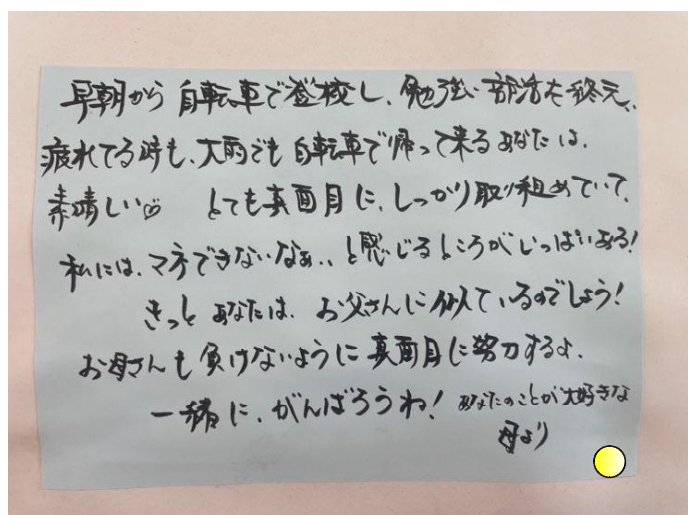 早朝から自転車で登校し、勉強、部活を終え、
疲れてる時も、大雨でも自転車で帰って来るあなたは、
素晴しい♡ とても真面目に、しっかり取り組めていて、
私には、マネできないなぁ、、と感じるところがいっぱいある!
きっとあなたは、お父さんに似ているのでしょう!
お母さんも負けないように真面目に努力するよ。
一緒に、がんばろうね! あなたのことが大好きな
母より